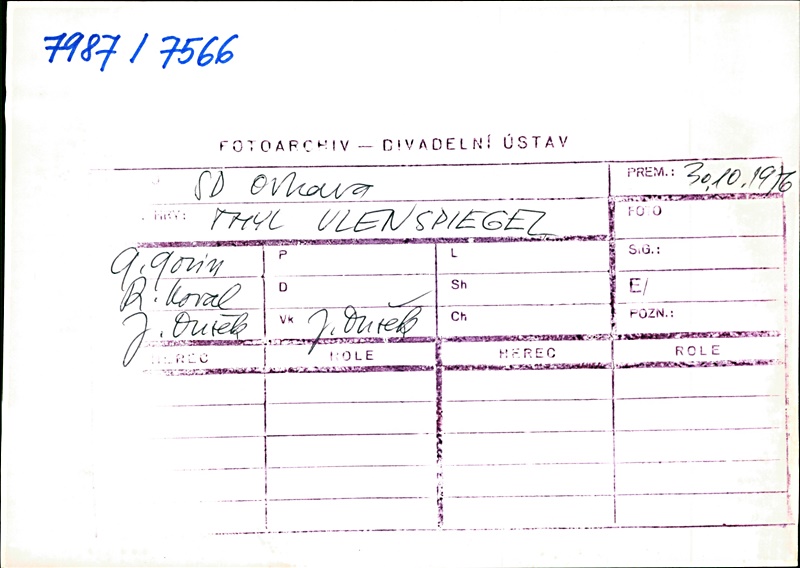 7987 / 7566
FOTOARCHIV — DIVADELNÍ ÚSTAV
SD Ostrava
PREM.: 30.10.1976
HRY: THYL ULENSPIEGEL
FOTO
G. Gorin P L SIG.:
R. Koval D Sh E/
J. Dušek Vk J. Dušek Ch POZN.:
HEREC ROLE HEREC ROLE